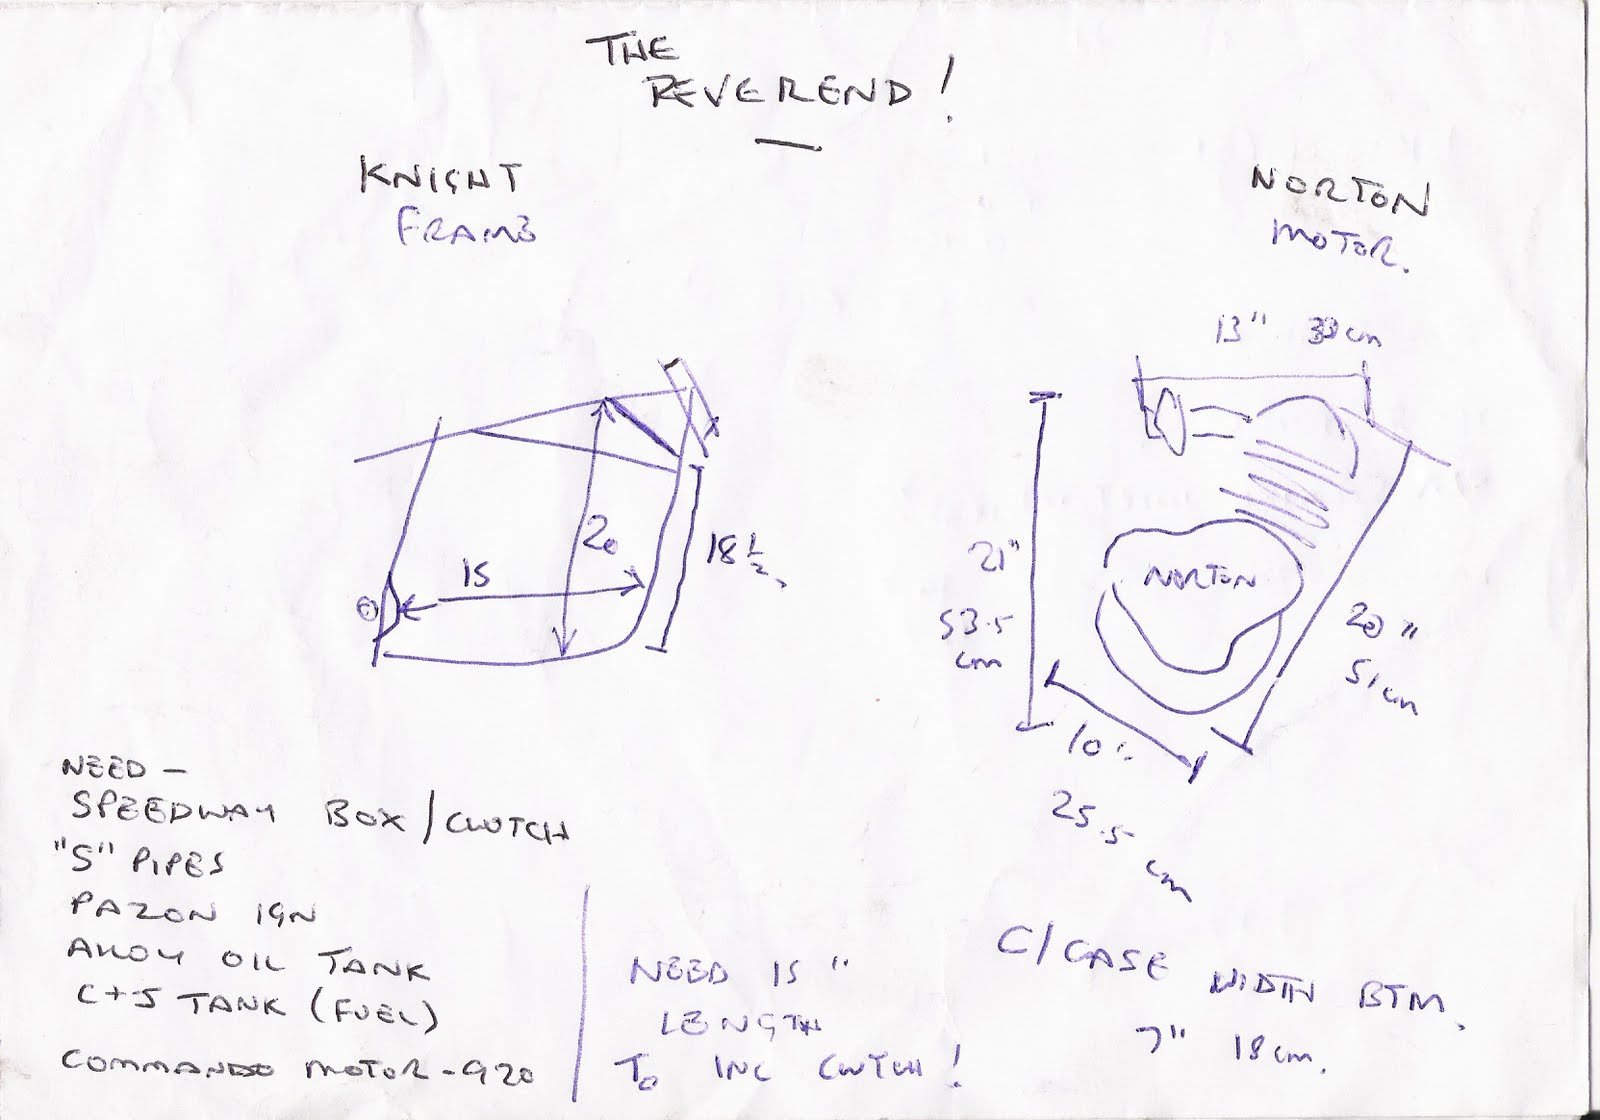 THE
REVEREND!
KNIGHT
FRAME
NORTON
MOTOR.
13" 33cm
20
15
18 1/2
21"
53.5
cm
NORTON
20"
51cm
10"
25.5
cm
NEED -
SPEEDWAY BOX/CLUTCH
"S" PIPES
PAZON IGN
ALLOY OIL TANK
C+J TANK (FUEL)
COMMANDO MOTOR-920
NEED 15"
LENGTH
TO INC CLUTCH!
C/CASE WIDTH BTM.
7" 18cm.